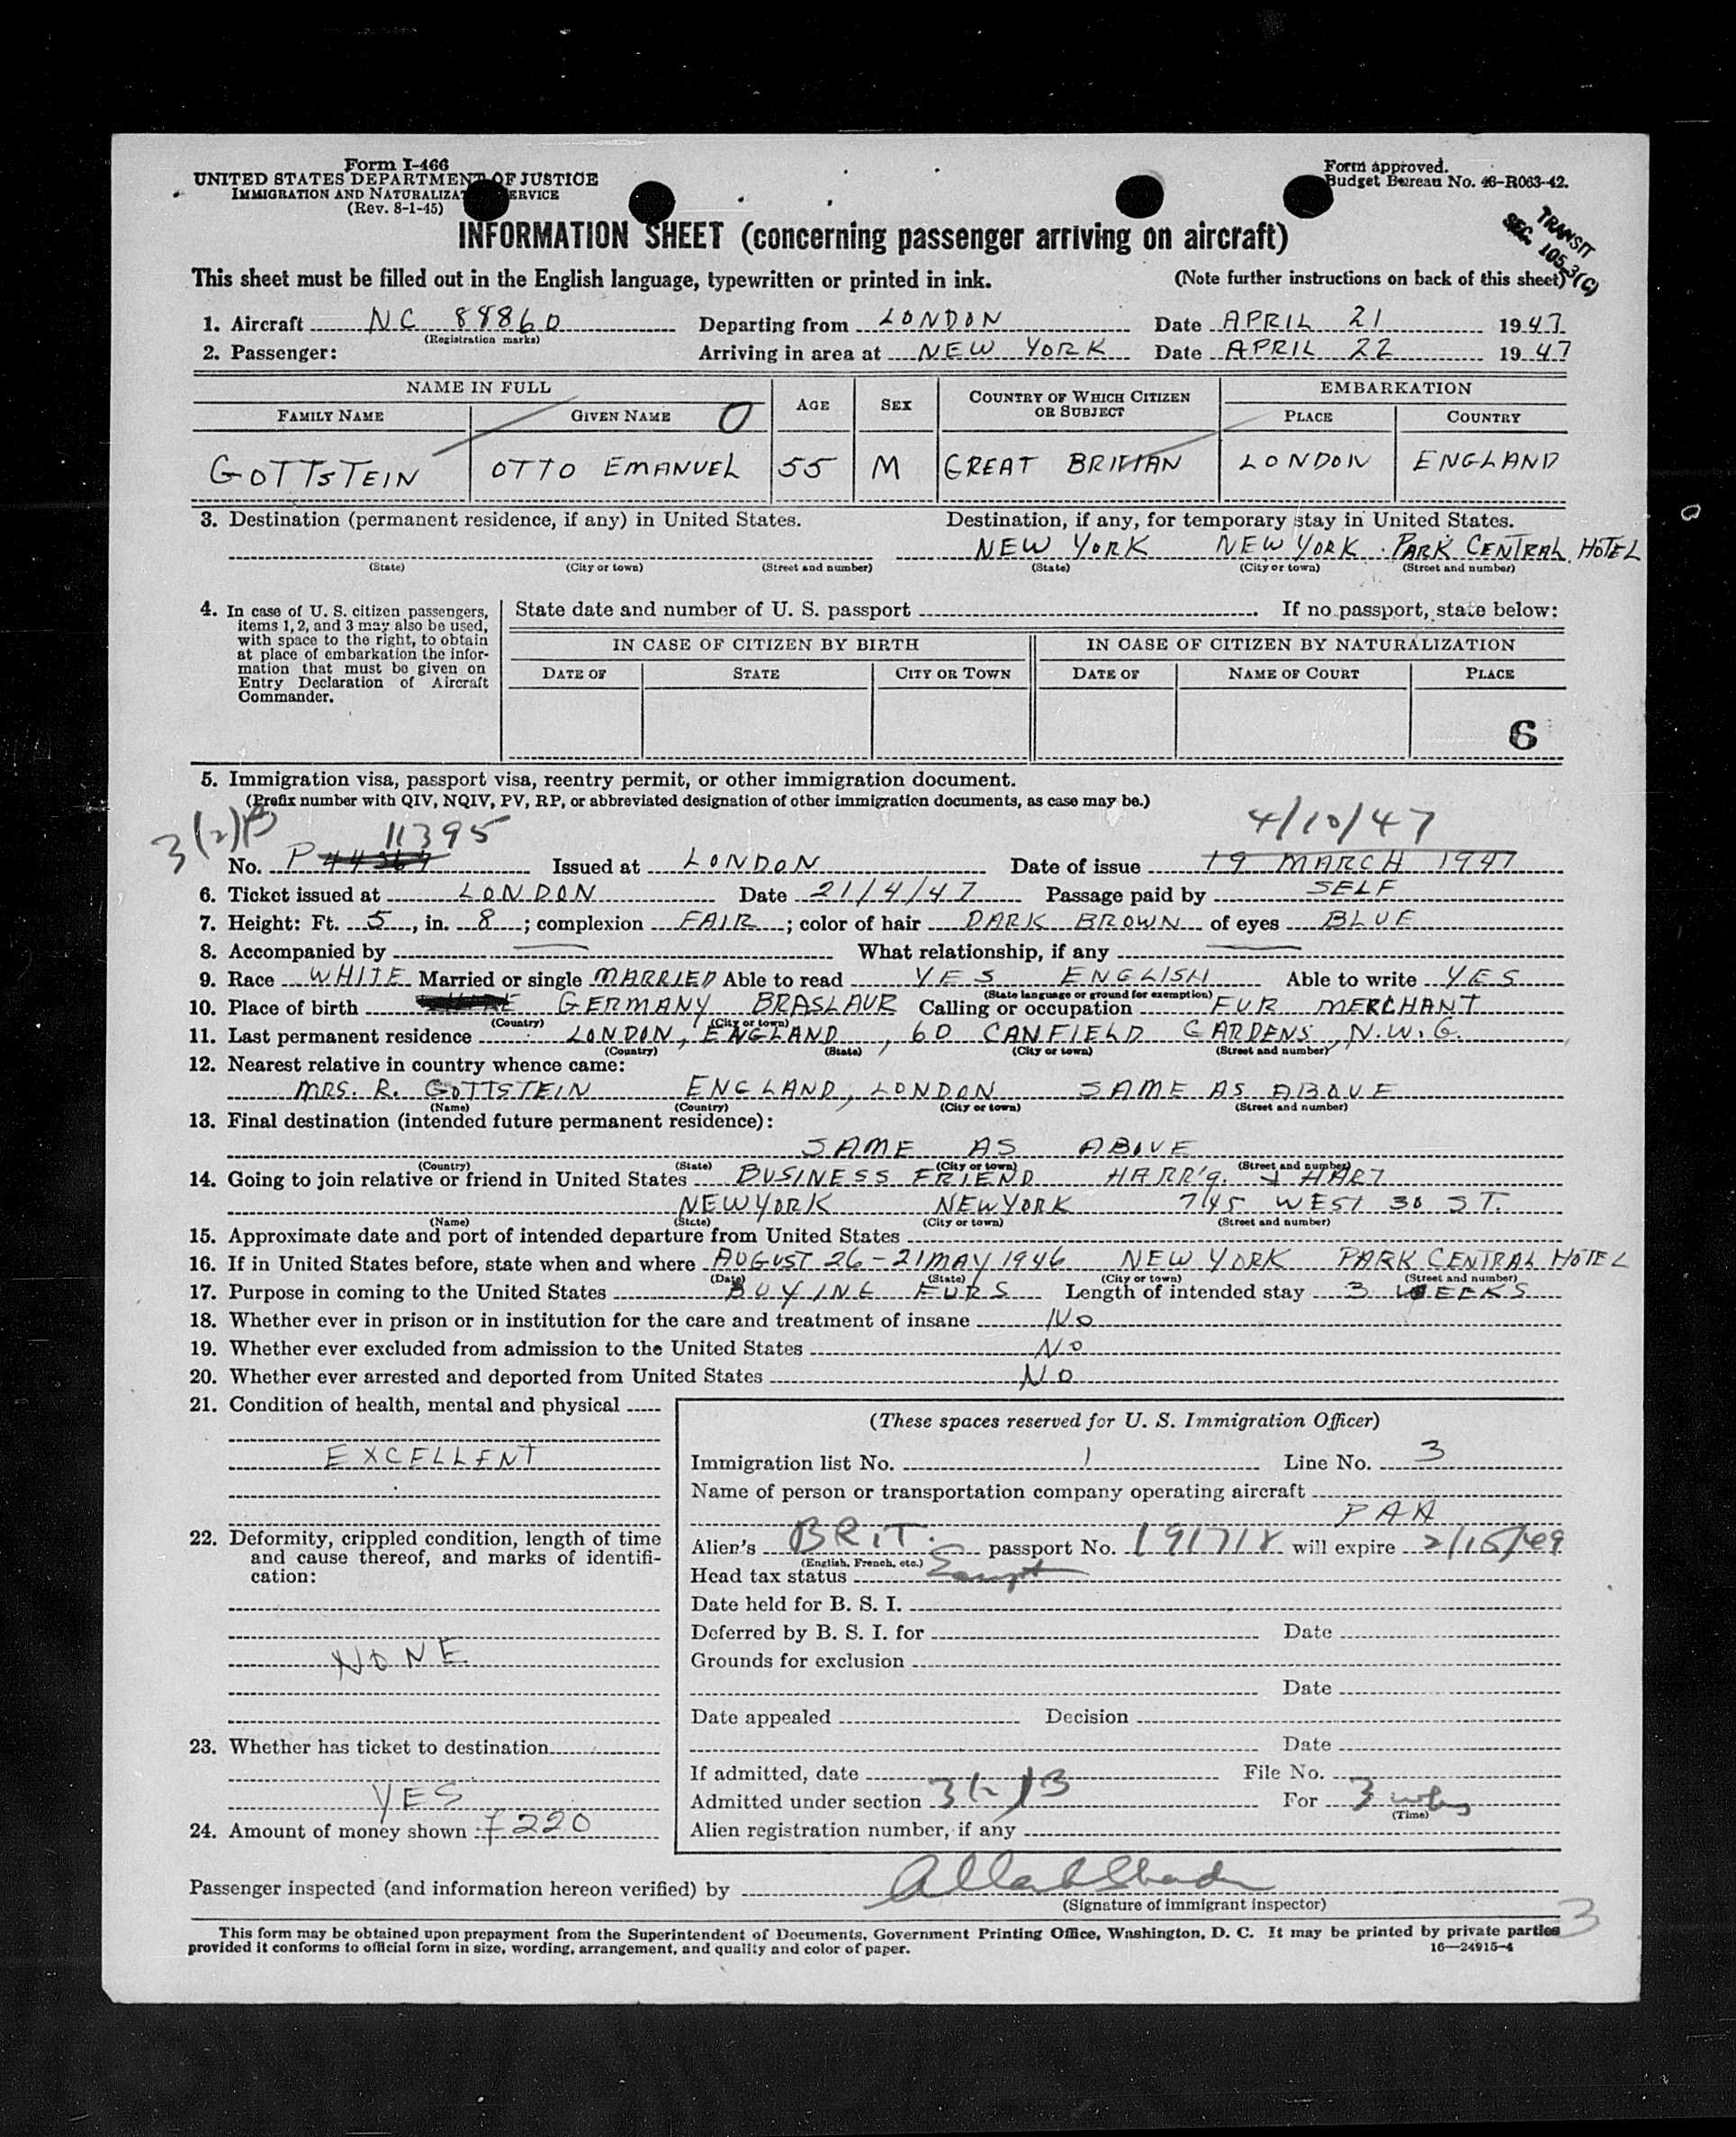 Form I-466
UNITED STATES DEPARTMENT OF JUSTICE
IMMIGRATION AND NATURALIZATION SERVICE
(Rev. 8-1-45)
Form approved.
Budget Bureau No. 43-R063-42.
TRANSIT
SEC. 105.3(C)
INFORMATION SHEET (concerning passenger arriving on aircraft)
This sheet must be filled out in the English language, typewritten or printed in ink. (Note further instructions on back of this sheet)
1. Aircraft NC 88860 Departing from LONDON Date APRIL 21 1947
(Registration marks)
2. Passenger: Arriving in area at NEW YORK Date APRIL 22 1947
NAME IN FULL AGE SEX COUNTRY OF WHICH CITIZEN OR SUBJECT EMBARKATION
FAMILY NAME GIVEN NAME O PLACE COUNTRY
GOTTSTEIN OTTO EMANUEL 55 M GREAT BRITIAN LONDON ENGLAND
3. Destination (permanent residence, if any) in United States. Destination, if any, for temporary stay in United States.
NEW YORK NEW YORK PARK CENTRAL HOTEL
(State) (City or town) (Street and number) (State) (City or town) (Street and number)
4. In case of U. S. citizen passengers, items 1, 2, and 3 may also be used, with space to the right, to obtain at place of embarkation the information that must be given on Entry Declaration of Aircraft Commander.
State date and number of U. S. passport If no passport, state below:
IN CASE OF CITIZEN BY BIRTH IN CASE OF CITIZEN BY NATURALIZATION
DATE OF STATE CITY OR TOWN DATE OF NAME OF COURT PLACE
6
5. Immigration visa, passport visa, reentry permit, or other immigration document.
(Prefix number with QIV, NQIV, PV, RP, or abbreviated designation of other immigration documents, as case may be.)
3(2)B 11395 4/10/47
No. P 44367 Issued at LONDON Date of issue 19 MARCH 1947
6. Ticket issued at LONDON Date 21/4/47 Passage paid by SELF
7. Height: Ft. 5, in. 8; complexion FAIR; color of hair DARK BROWN of eyes BLUE
8. Accompanied by — What relationship, if any —
9. Race WHITE Married or single MARRIED Able to read YES ENGLISH Able to write YES
(State language or ground for exemption)
10. Place of birth GERMANY BRASLAUR Calling or occupation FUR MERCHANT
(Country) (City or town)
11. Last permanent residence LONDON, ENGLAND, 60 CANFIELD GARDENS, N.W.6.
(Country) (State) (City or town) (Street and number)
12. Nearest relative in country whence came:
MRS. R. GOTTSTEIN ENGLAND, LONDON SAME AS ABOVE
(Name) (Country) (City or town) (Street and number)
13. Final destination (intended future permanent residence):
SAME AS ABOVE
(Country) (State) (City or town) (Street and number)
14. Going to join relative or friend in United States BUSINESS FRIEND HARR'g. & HART
NEW YORK NEW YORK 745 WEST 30 ST.
(Name) (State) (City or town) (Street and number)
15. Approximate date and port of intended departure from United States
16. If in United States before, state when and where AUGUST 26 - 21 MAY 1946 NEW YORK PARK CENTRAL HOTEL
(Date) (State) (City or town) (Street and number)
17. Purpose in coming to the United States BUYING FURS Length of intended stay 3 WEEKS
18. Whether ever in prison or in institution for the care and treatment of insane NO
19. Whether ever excluded from admission to the United States NO
20. Whether ever arrested and deported from United States NO
21. Condition of health, mental and physical
EXCELLENT
22. Deformity, crippled condition, length of time and cause thereof, and marks of identification:
NONE
23. Whether has ticket to destination
YES
24. Amount of money shown £220
(These spaces reserved for U. S. Immigration Officer)
Immigration list No. 1 Line No. 3
Name of person or transportation company operating aircraft
PAA
Alien's BRIT. passport No. 191718 will expire 2/15/49
(English, French, etc.)
Head tax status Exempt
Date held for B. S. I.
Deferred by B. S. I. for Date
Grounds for exclusion
Date
Date appealed Decision
Date
If admitted, date File No.
Admitted under section 3(2)B For 3 wks
(Time)
Alien registration number, if any
Passenger inspected (and information hereon verified) by
(Signature of immigrant inspector)
3
This form may be obtained upon prepayment from the Superintendent of Documents, Government Printing Office, Washington, D. C. It may be printed by private parties
provided it conforms to official form in size, wording, arrangement, and quality and color of paper. 16—24915-4